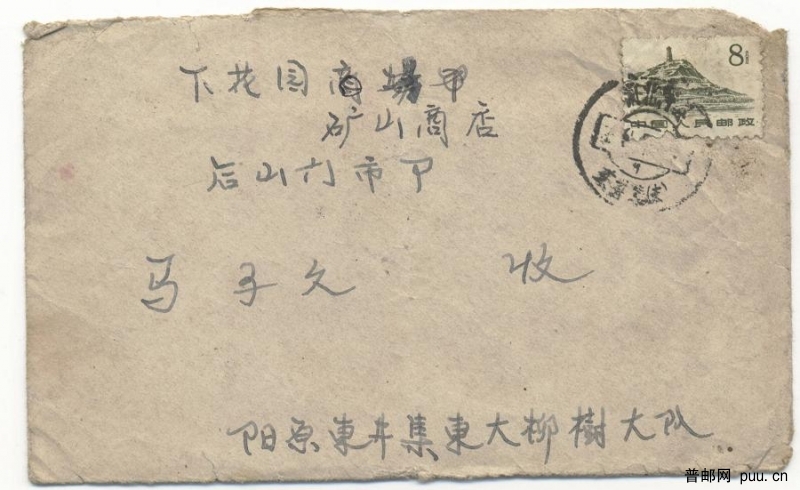 下花园商場甲
矿山商店
后山门市甲
马子文 收
阳原東井集東大柳樹大队
8分
中国人民邮政
普邮网 puu.cn